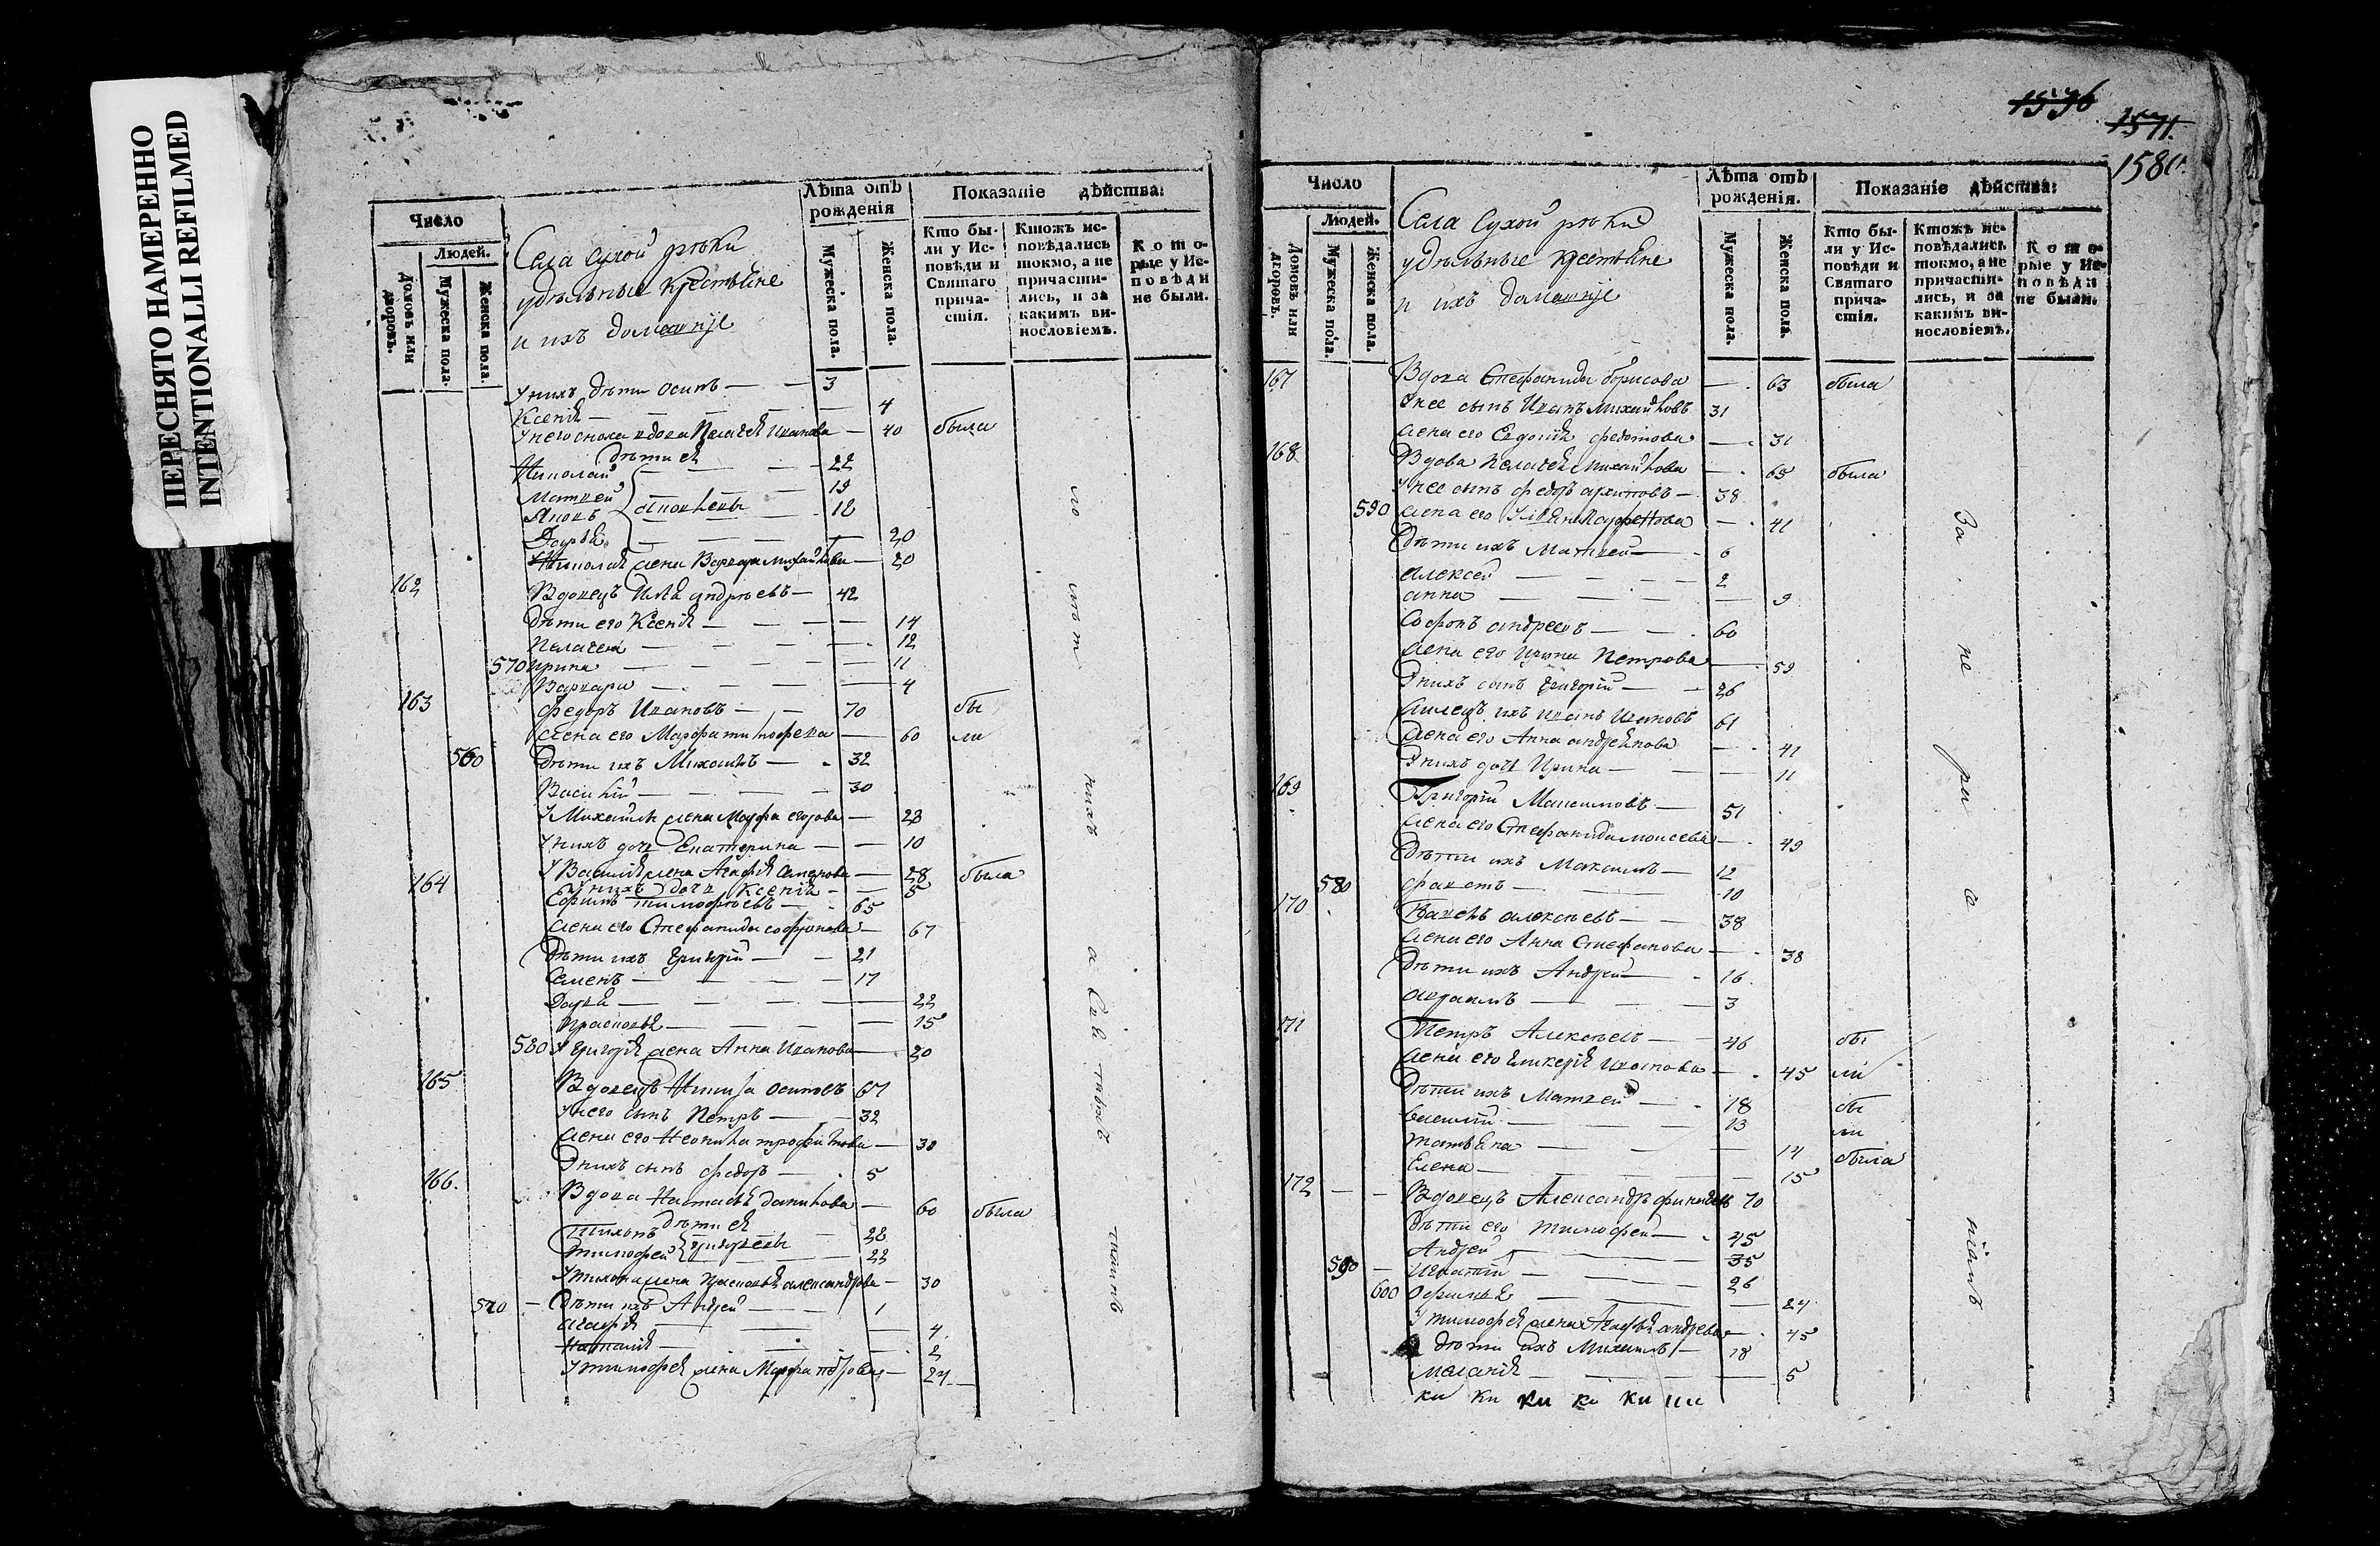 ПЕРЕСНЯТО НАМЕРЕННО
INTENTIONALLI REFILMED
Число
Людей.
Домовъ или дворовъ.
Мужеска пола.
Женска пола.
Села Сухой рѣки
удѣльные крестьяне
и ихъ домашніе
Лѣта отъ рожденія
Мужеска пола.
Женска пола.
Показаніе дѣйства:
Кто были у Исповѣди и Святаго причастія.
Ктожъ исповѣдались токмо, а не причастились, и за какимъ винословіемъ.
Которые у Исповѣди не были.
У нихъ дѣти Осипъ — — 3
Ксенія — — — — 4
У него сноха вдова Пелагея Иванова — 40 была
дѣти ея
Николай — — 22
Матвей — 19
Яковъ — 12
Дарья — — — 20
Николая жена Варвара Михайлова — 20
162 Вдовецъ Илья Андреевъ — 42
Дѣти его Ксенія — — — 14
Пелагея — — — 12
570 Ирина — — — — 11
Варвара — — — — 4
163 Федоръ Ивановъ — — 70 бы
жена его Марфа Тимофеева — 60 ли
560 Дѣти ихъ Михаилъ — 32
Василій — — — 30
У Михаила жена Марфа Егорова — 28
У нихъ дочь Екатерина — — 10
У Василія жена Агафія Семенова — 28 была
У нихъ дочь Ксенія — — 5
164 Тимофѣевъ — 65
жена его Стефанида Софронова — 67
Дѣти ихъ Григорій — — 21
Семенъ — — — 17
Дарья — — — — 22
Прасковья — — — 15
580 У Григорія жена Анна Иванова — 20
165 Вдовецъ Никита Осиповъ 67
У него сынъ Петръ — — 32
жена его Неонила Трофимова — 30
У нихъ сынъ Федоръ — 5
166. Вдова Настасья Данилова — 60 была
дѣти ея
Тихонъ — 28
Тимофей Григорьевы — 22
У Тихона жена Прасковья Александрова — 30
570 — Дѣти ихъ Андрей — — 1
Агафія — — 4
Наталія — — 2
У Тимофея жена Марфа Петрова — 24
1576
1571.
158
Число
Людей.
Домовъ или дворовъ.
Мужеска пола.
Женска пола.
Села Сухой рѣки
удѣльные крестьяне
и ихъ домашніе
Лѣта отъ рожденія.
Мужеска пола.
Женска пола.
Показаніе дѣйства:
Кто были у Исповѣди и Святаго причастія.
Ктожъ исповѣдались токмо, а не причастились, и за какимъ винословіемъ.
Которые у Исповѣди не были.
167 Вдова Стефанида Борисова — 63 была
У нее сынъ Иванъ Михайловъ 31
жена его Евдокія Федотова — 31
168 Вдова Пелагея Михайлова — 65 была
У нее сынъ Федоръ Архиповъ — 38
590 жена его — 41
Дѣти ихъ Матвей — 6
Алексей — — — 2
Анна — — — 9
Софонъ Андреевъ — — 60
жена его Ирина Петрова — 59
У нихъ сынъ Григорій — — 26
ихъ Иванъ Ивановъ 61
жена его Анна — 41
У нихъ дочь Ирина — — 11
169 Григорій Максимовъ — 51
жена его Стефанида Моисеева — 49
Дѣти ихъ Максимъ — 12
580 — — 10
170 Алексѣевъ — — 38
жена его Анна Стефанова — 38
Дѣти ихъ Андрей — 16.
Авраамъ — — 3
171 Петръ Алексѣевъ — 46 бы
жена его Гликерія — 45 ли
Дѣти ихъ Матвей — 18 бы
Василій — — 13 ли
Татьяна — — 14 была
Елена — — 15
172 — — Вдовецъ Александръ 70
Дѣти его Тимофей — 45
Андрей — — 35
590 — Игнатій — — 26
600 — — 24
У Тимофея жена Агафья Андреева — 45
Дѣти ихъ Михаилъ — 18
Меланія — — — 5
ки ки ки ки ки